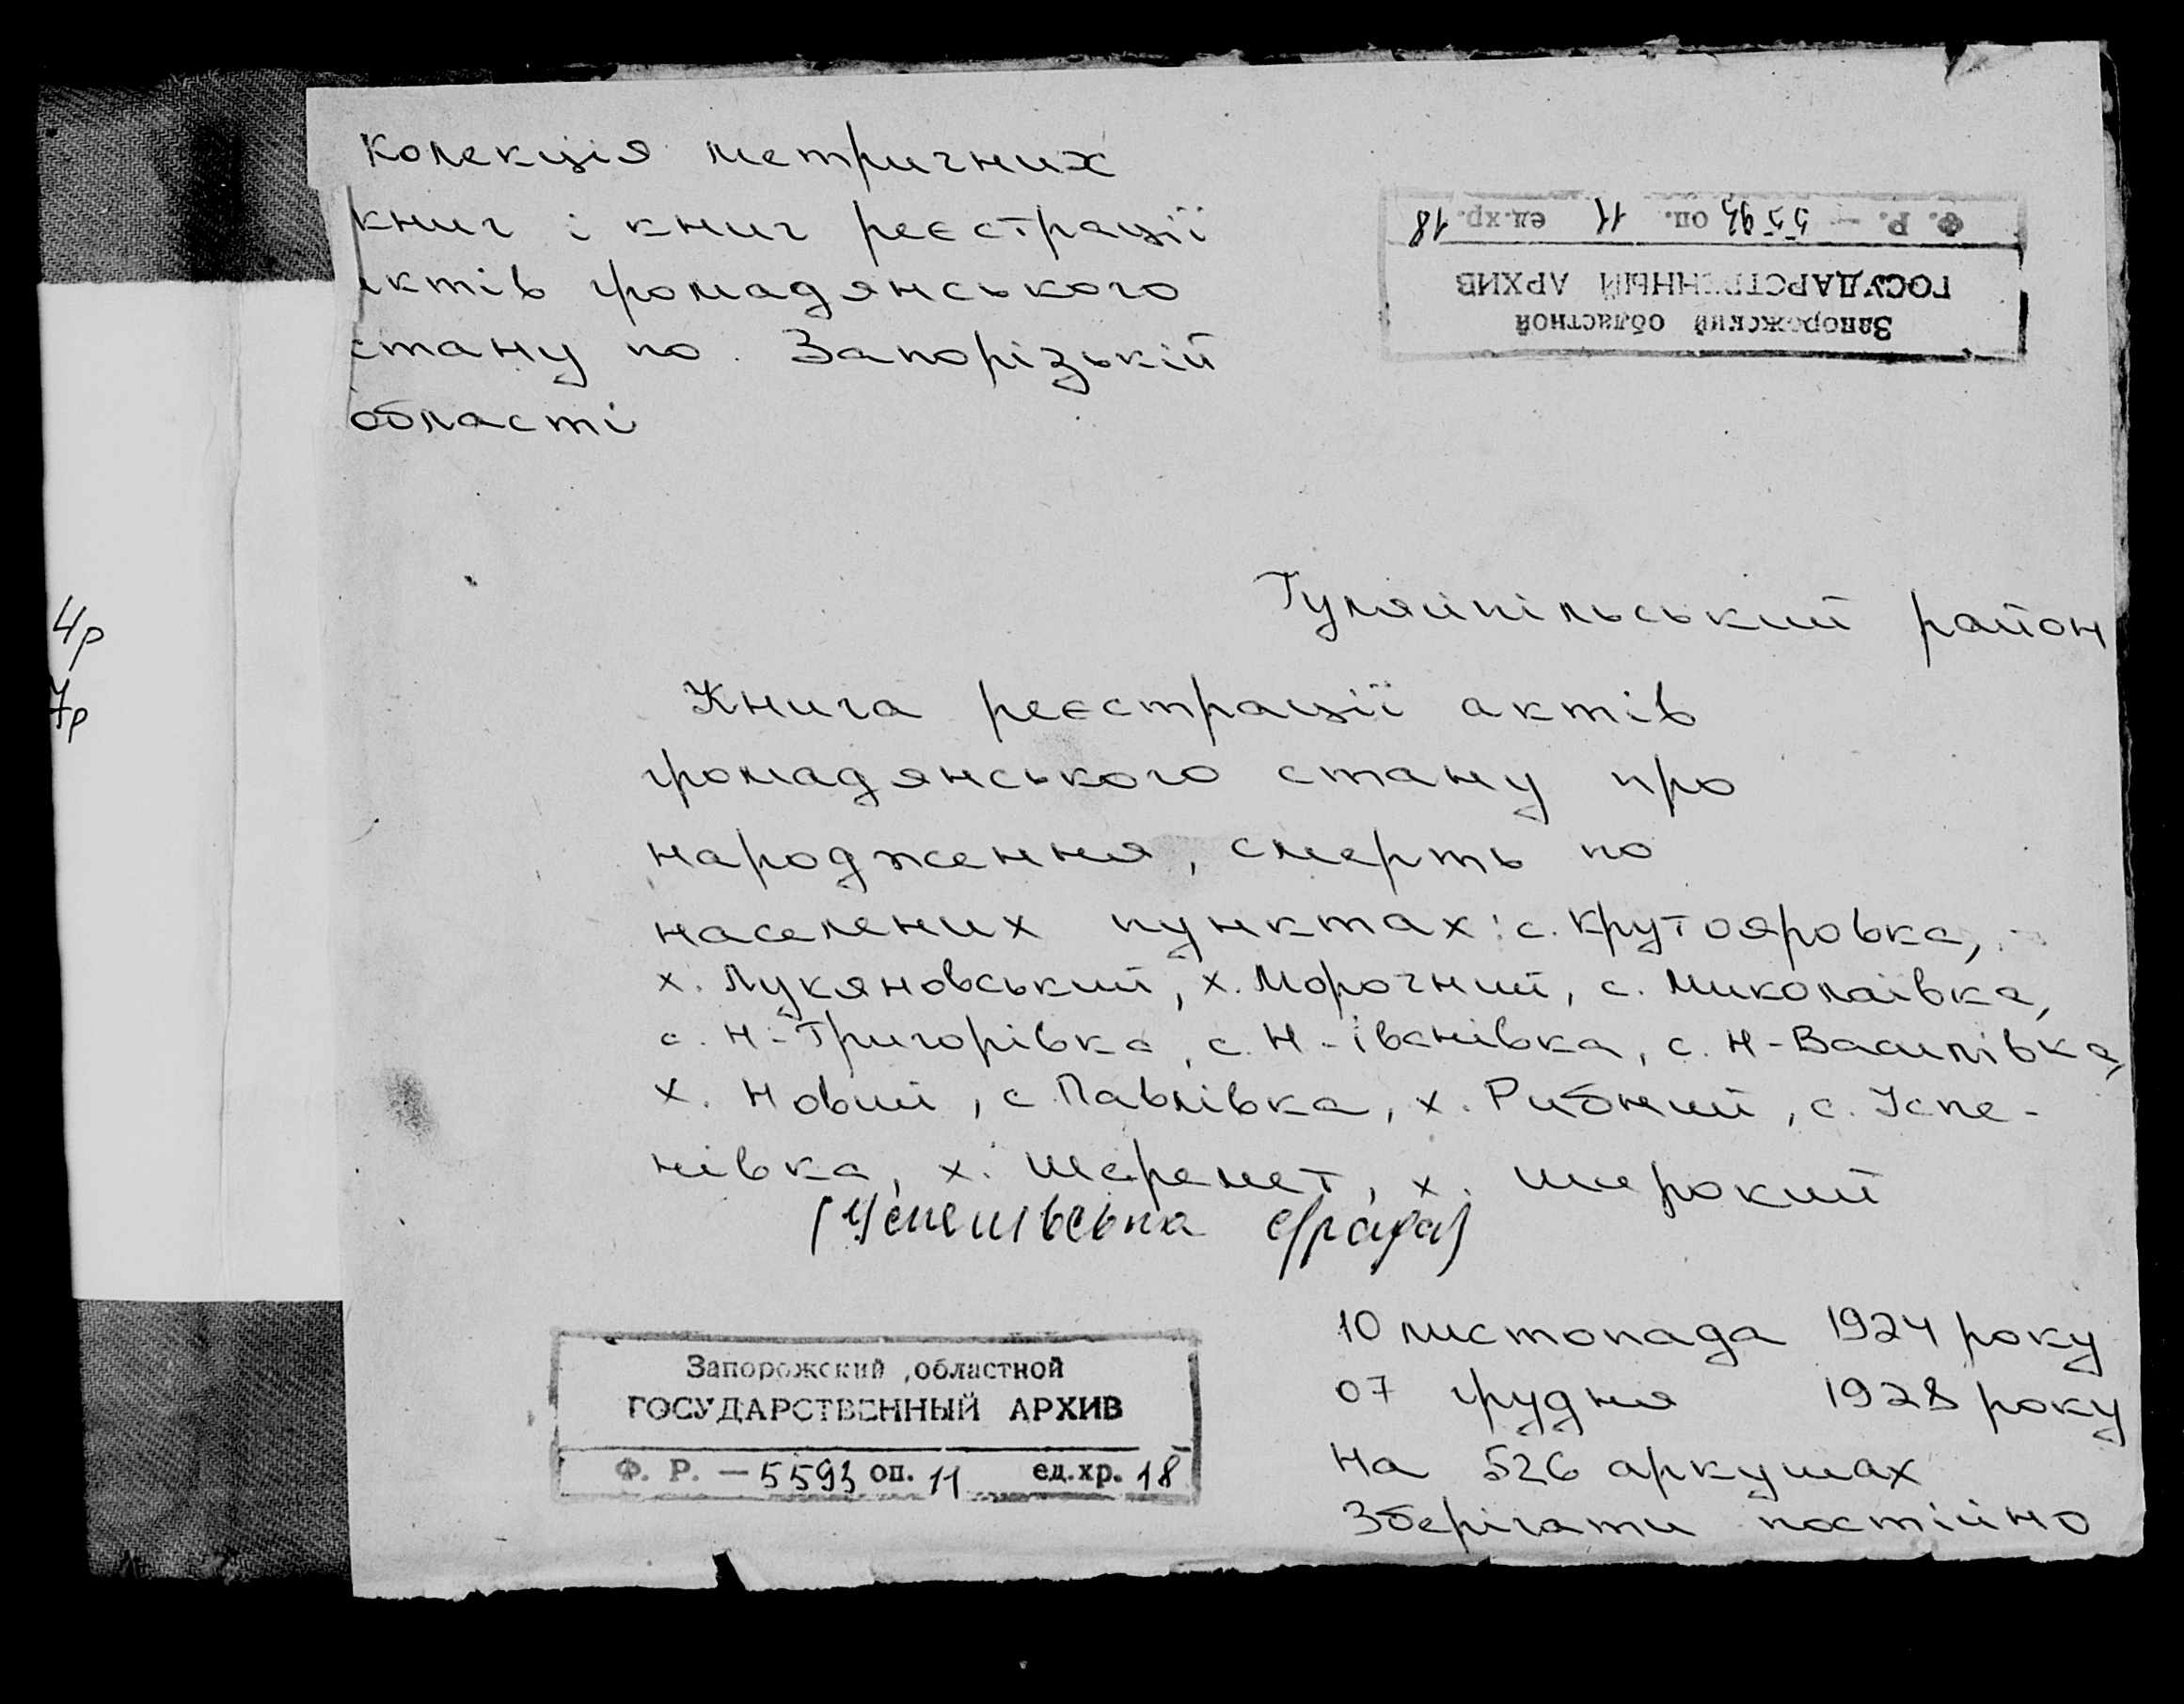 Колекція метричних
книг і книг реєстрації
актів громадянського
стану по Запорізькій
області
Запорожский областной
ГОСУДАРСТВЕННЫЙ АРХИВ
Ф. Р. — 5593 оп. 11 ед.хр. 18
Гуляйпільський район
4р
7р
Книга реєстрації актів
громадянського стану про
народження, смерть по
населених пунктах: с. Крутояровка,
х. Лукяновський, х. Морочний, с. Миколаївка,
с. Н-Григорівка, с. Н-Іванівка, с. Н-Василівка,
х. Новий, с. Павлівка, х. Рибний, с. Успе-
нівка, х. Шеремет, х. Широкий
(Успенівська с/рада)
10 листопада 1924 року
07 грудня 1928 року
На 526 аркушах
Зберігати постійно
Запорожский областной
ГОСУДАРСТВЕННЫЙ АРХИВ
Ф. Р. — 5593 оп. 11 ед.хр. 18